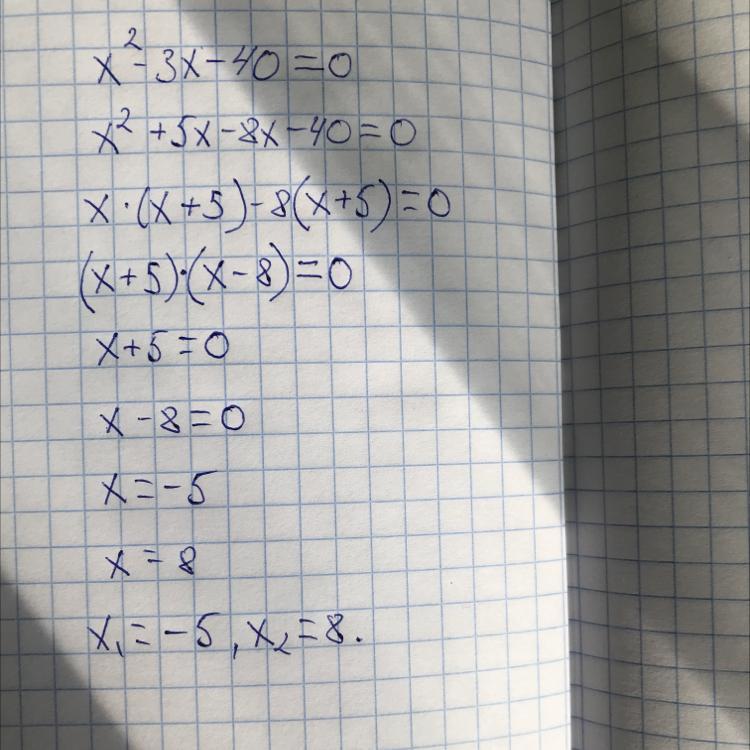 x² - 3x - 40 = 0
x² + 5x - 8x - 40 = 0
x · (x + 5) - 8(x + 5) = 0
(x + 5) · (x - 8) = 0
x + 5 = 0
x - 8 = 0
x = -5
x = 8
x₁ = -5, x₂ = 8.